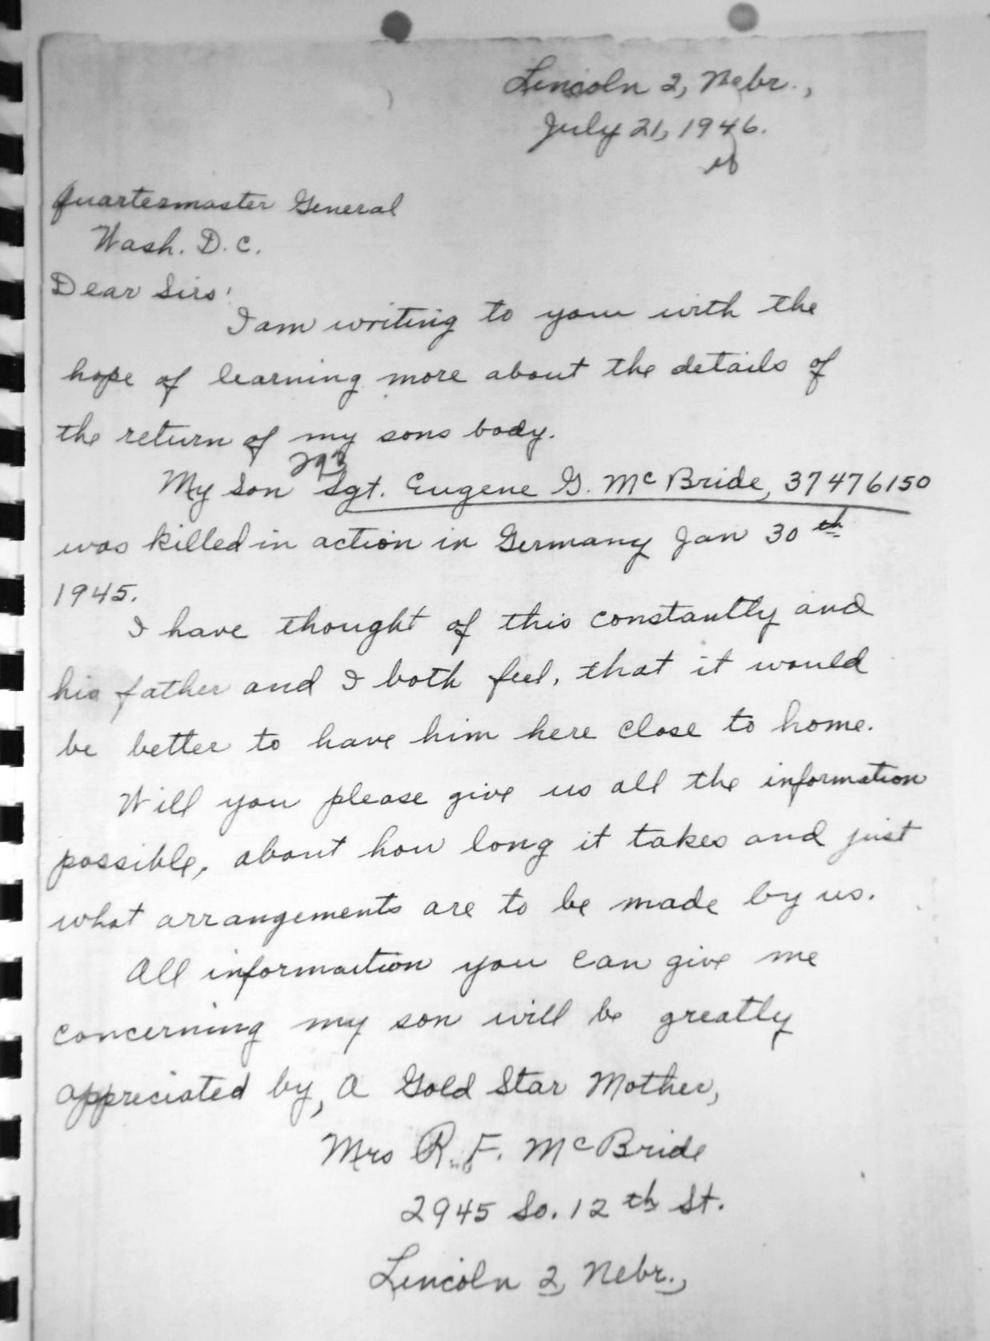 Lincoln 2, Nebr.,
July 21, 1946.
Quartermaster General
Wash. D.C.
Dear Sirs'
I am writing to you with the
hope of learning more about the details of
the return of my sons body.
293
My Son Sgt. Eugene G. McBride, 37476150
was killed in action in Germany Jan 30th
1945.
I have thought of this constantly and
his father and I both feel, that it would
be better to have him here close to home.
Will you please give us all the information
possible, about how long it takes and just
what arrangements are to be made by us.
All information you can give me
concerning my son will be greatly
appreciated by, A Gold Star Mother,
Mrs R. F. McBride
2945 So. 12th St.
Lincoln 2, Nebr.,